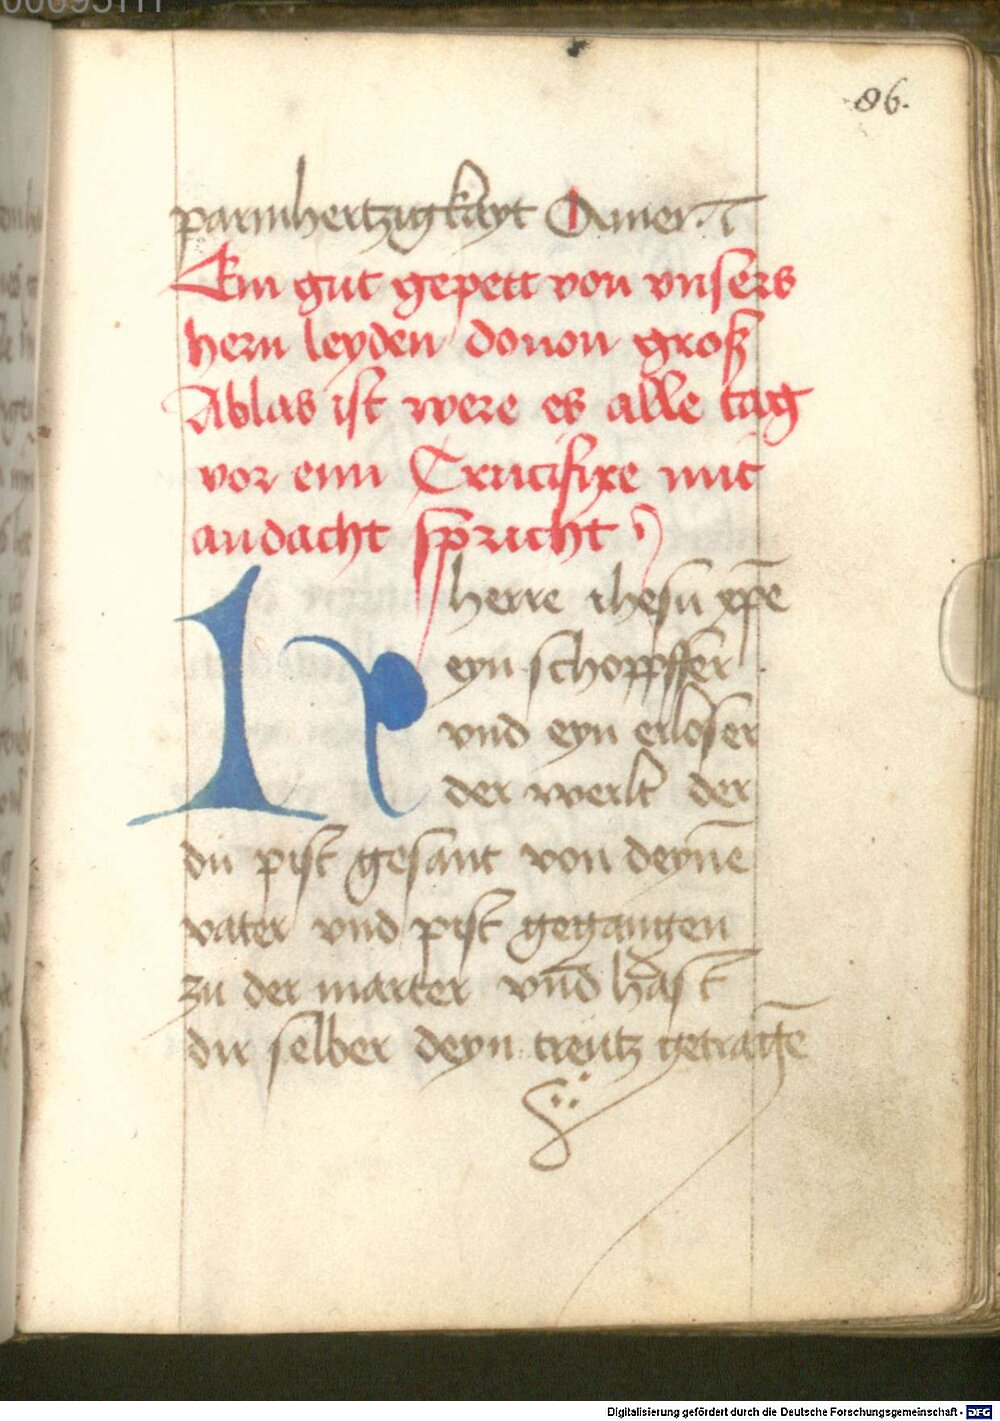 86.
parmhertzigkayt Amen
Ein gut gepett von vnsers
hern leyden douon groß
Ablas ist were es alle tag
vor eim Crucifixe mit
andacht spricht
herre ihesu xp̄e
eyn schoppffer
vnd eyn erloser
der werlt der
du pist gesant von deynē
vater vnd pist gegangen
zu der marter vnd hast
dir selber deyn creutz getragē
Digitalisierung gefördert durch die Deutsche Forschungsgemeinschaft - DFG